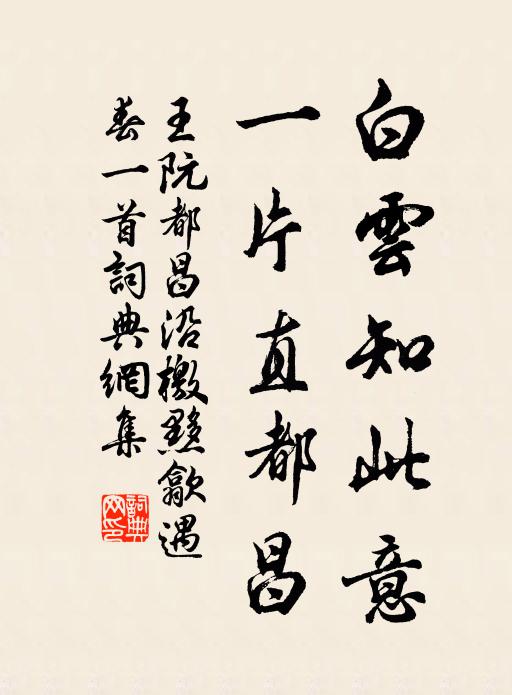 白雲知此意
一片直都昌
王阮都昌沿檄黟歙遇
春一首詞典網集
詞典
网印